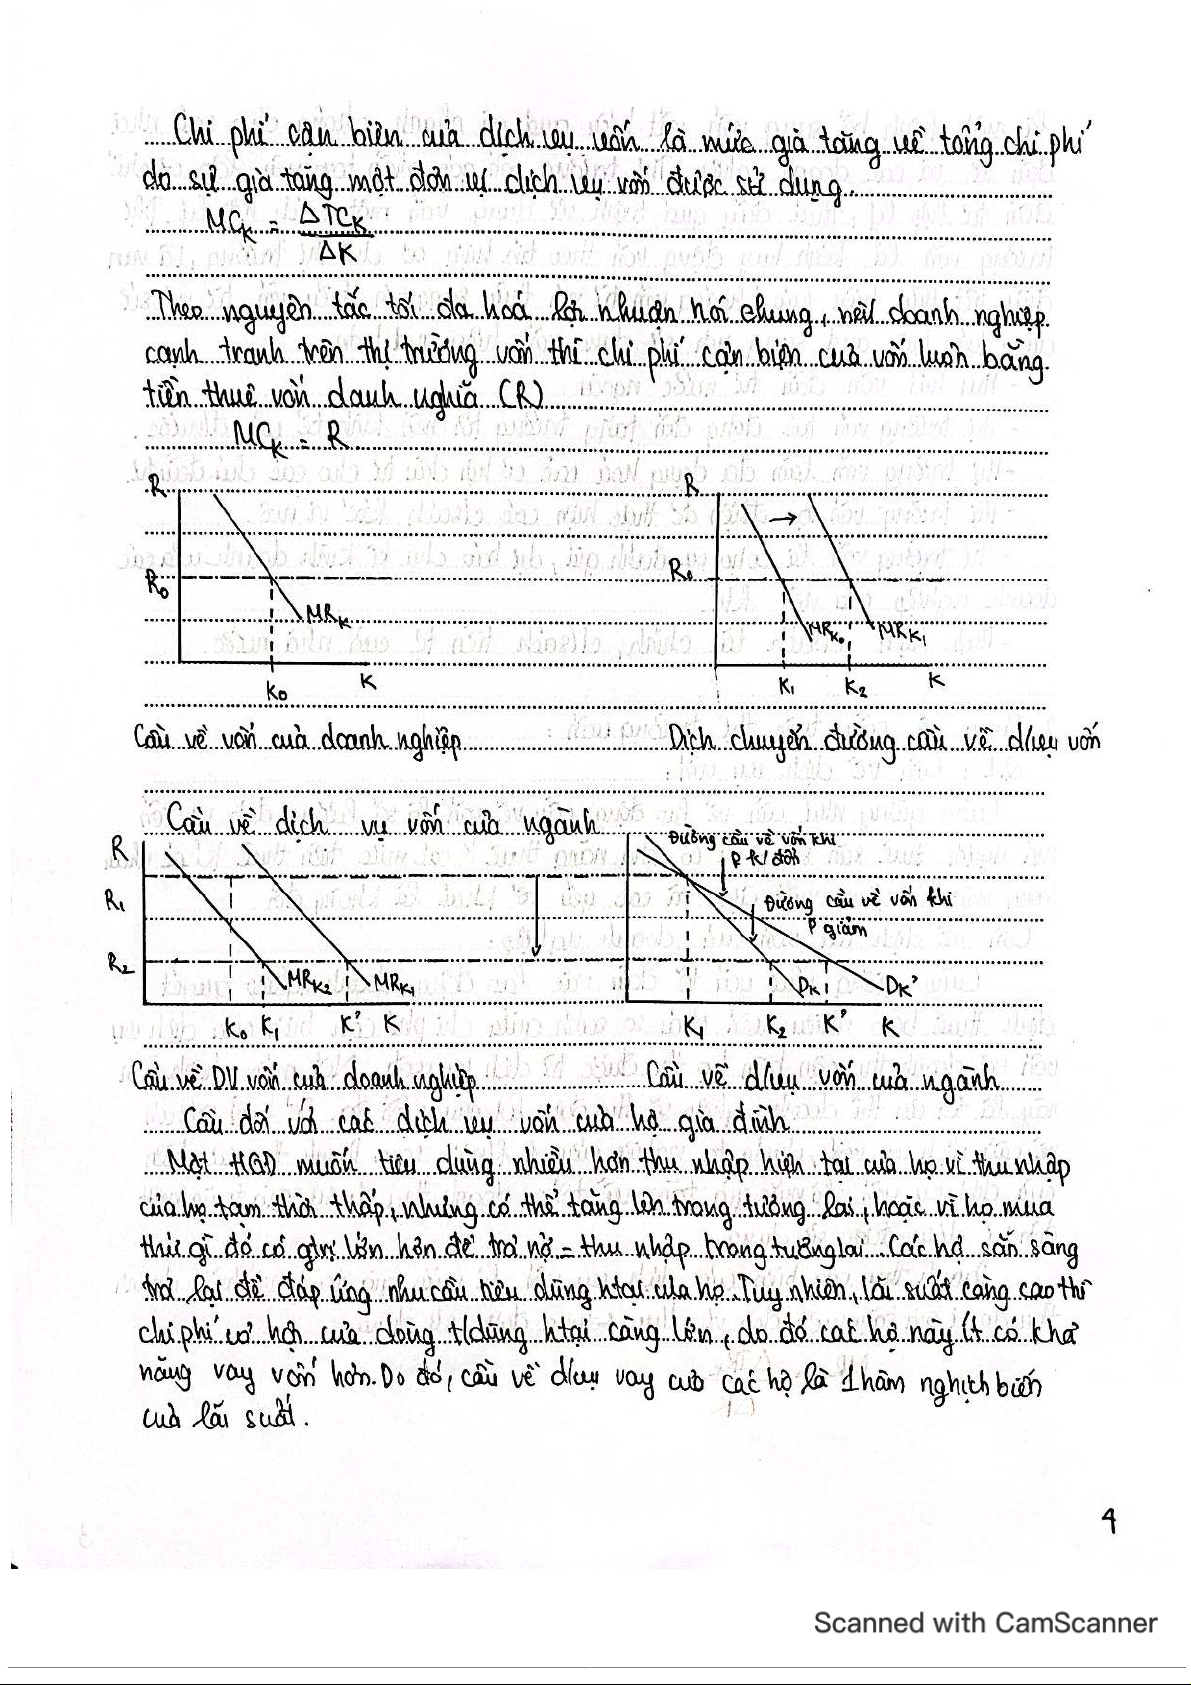 Chi phí cận biên của dịch vụ vốn là mức gia tăng về tổng chi phí
do sự gia tăng một đơn vị dịch vụ vốn được sử dụng.
MCK = ΔTCK
ΔK
Theo nguyên tắc tối đa hoá lợi nhuận nói chung, nếu doanh nghiệp
cạnh tranh trên thị trường vốn thì chi phí cận biên của vốn luôn bằng
tiền thuê vốn danh nghĩa (R)
MCK = R
R R
R0 R0
MRK MRK0 MRK1
K0 K K1 K2 K
Cầu về vốn của doanh nghiệp Dịch chuyển đường cầu về d/vụ vốn
Cầu về dịch vụ vốn của ngành
R Đường cầu về vốn khi
P k/đổi
R1 Đường cầu về vốn khi
P giảm
R2 MRK2 MRK1 DK DK'
K0 K1 K' K K1 K2 K' K
Cầu về DV vốn của doanh nghiệp Cầu về d/vụ vốn của ngành
Cầu đối với các dịch vụ vốn của hộ gia đình
Một HGĐ muốn tiêu dùng nhiều hơn thu nhập hiện tại của họ vì thu nhập
của họ tạm thời thấp, nhưng có thể tăng lên trong tương lai, hoặc vì họ mua
thứ gì đó có gtrị lớn hơn để trả nợ = thu nhập trong tương lai. Các hộ sẵn sàng
trả lại để đáp ứng nhu cầu tiêu dùng htại của họ. Tuy nhiên, lãi suất càng cao thì
chi phí cơ hội của dòng t/dùng htại càng lớn, do đó các hộ này ít có khả
năng vay vốn hơn. Do đó, cầu về d/vụ vay của các hộ là 1 hàm nghịch biến
của lãi suất.
4
Scanned with CamScanner